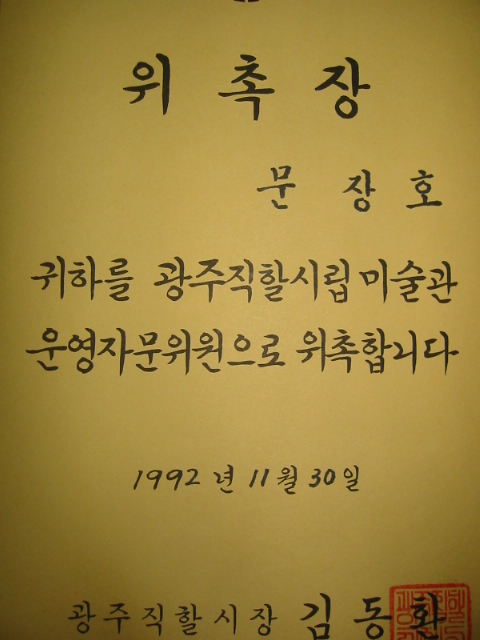 위촉장
문장호
귀하를 광주직할시립미술관
운영자문위원으로 위촉합니다
1992년 11월 30일
광주직할시장 김동환